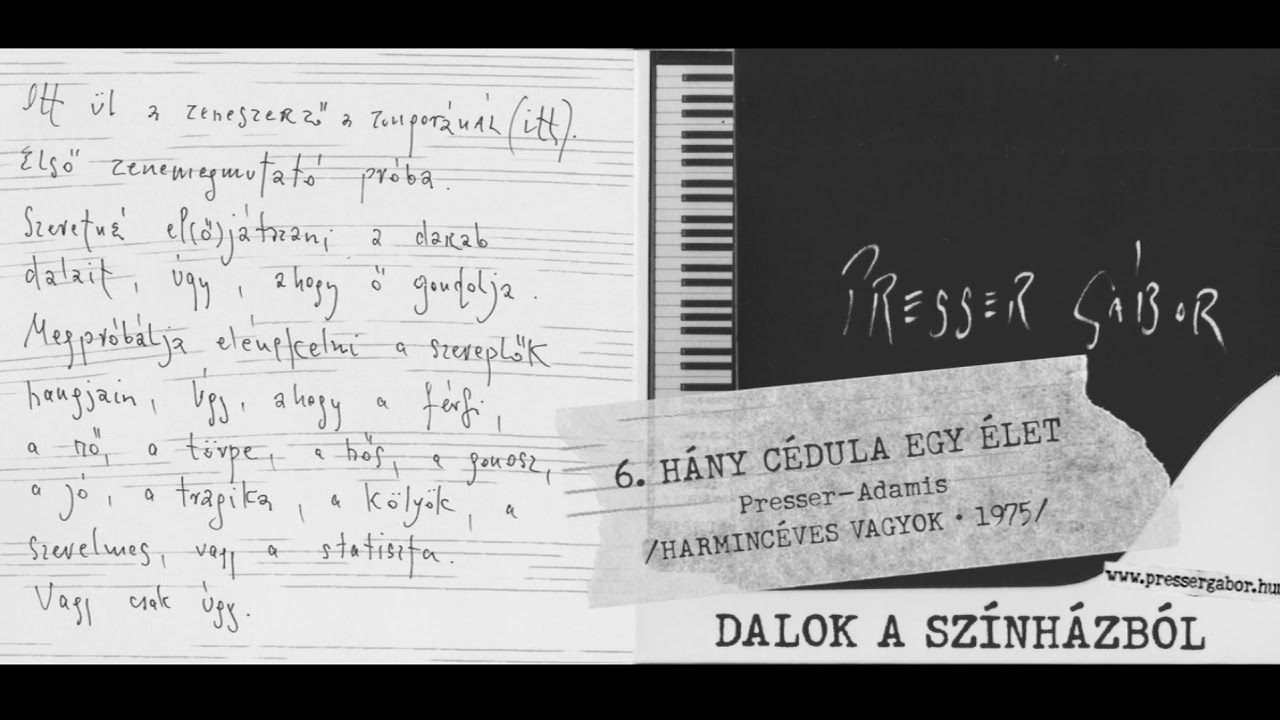 Itt ül a zeneszerző a zongoránál (itt).
Első zenemegmutató próba.
Szeretné el(ő)játszani a darab
dalait, úgy, ahogy ő gondolja.
Megpróbálja elénekelni a szereplők
hangjain, úgy, ahogy a férfi,
a nő, a törpe, a hős, a gonosz,
a jó, a tragika, a kölyök, a
szerelmes, vagy a statiszta.
Vagy csak úgy.
PRESSER GÁBOR
6. HÁNY CÉDULA EGY ÉLET
Presser-Adamis
/HARMINCÉVES VAGYOK · 1975/
www.pressergabor.hu
DALOK A SZÍNHÁZBÓL